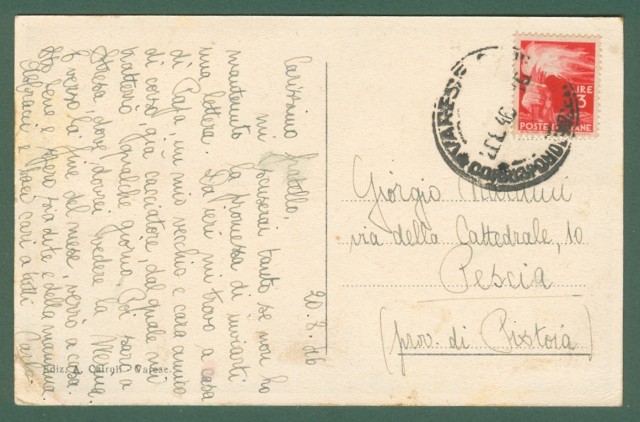 20.8.46
Carissimo fratello,
mi scuserai tanto se non ho
mantenuto la promessa di inviarti
una lettera. Da ieri mi trovo a casa
di Papa, un mio vecchio e caro amico
di corso, già cacciatore, dal quale mi
tratterrò qualche giorno. Poi sarò a
Stresa dove dovrei vedere la
e verso la fine del mese, verrò a casa.
Sto bene e spero sia di te e della mamma.
Abbracci e baci cari a tutti
Carlo
Ediz. A. Cairoli - Varese.
VARESE
CORRISPONDENZE
LIRE
3
POSTE ITALIANE
Giorgio
via della Cattedrale, 10
Pescia
(prov. di Pistoia)